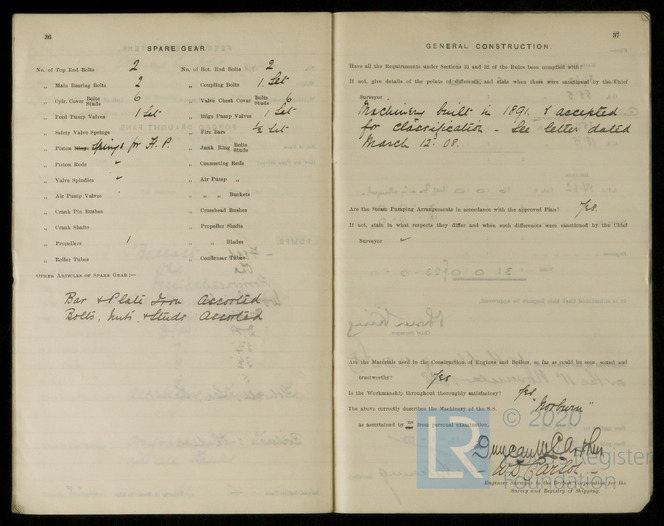 36
SPARE GEAR.
No. of Top End Bolts 2
No. of Bot. End Bolts 2
„ Main Bearing Bolts 2
„ Coupling Bolts 1 Set
„ Cylr. Cover Bolts Studs 6
„ Valve Chest Cover Bolts Studs 6
„ Feed Pump Valves 1 Set
„ Bilge Pump Valves 1 Set
„ Safety Valve Springs
„ Fire Bars ½ Set
„ Piston Rings Springs for H.P.
„ Junk Ring Bolts Studs
„ Piston Rods
„ Connecting Rods
„ Valve Spindles
„ Air Pump „
„ Air Pump Valves
„ „ „ Buckets
„ Crank Pin Bushes
„ Crosshead Bushes
„ Crank Shafts
„ Propeller Shafts
„ Propellers 1
„ „ Blades
„ Boiler Tubes
„ Condenser Tubes
OTHER ARTICLES OF SPARE GEAR:—
Bar & Plate Iron Assorted
Bolts, Nuts, & Studs Assorted
37
GENERAL CONSTRUCTION.
Have all the Requirements under Sections 31 and 32 of the Rules been complied with?
If not, give details of the points of difference, and state when these were sanctioned by the Chief
Surveyor
Machinery built in 1891 & accepted
for classification – See letter dated
March 12. 08.
Are the Steam Pumping Arrangements in accordance with the approved Plan? Yes.
If not, state in what respects they differ and when such differences were sanctioned by the Chief
Surveyor
Are the Materials used in the Construction of Engines and Boilers, so far as could be seen, sound and
trustworthy? Yes
Is the Workmanship throughout thoroughly satisfactory? Yes
The above correctly describes the Machinery of the S.S. "Norburn"
as ascertained by from personal examination.
Duncan McCarther
Engineer Surveyor to the British Corporation for the
Survey and Registry of Shipping.
© 2020
LR
Lloyd's Register
Foundation